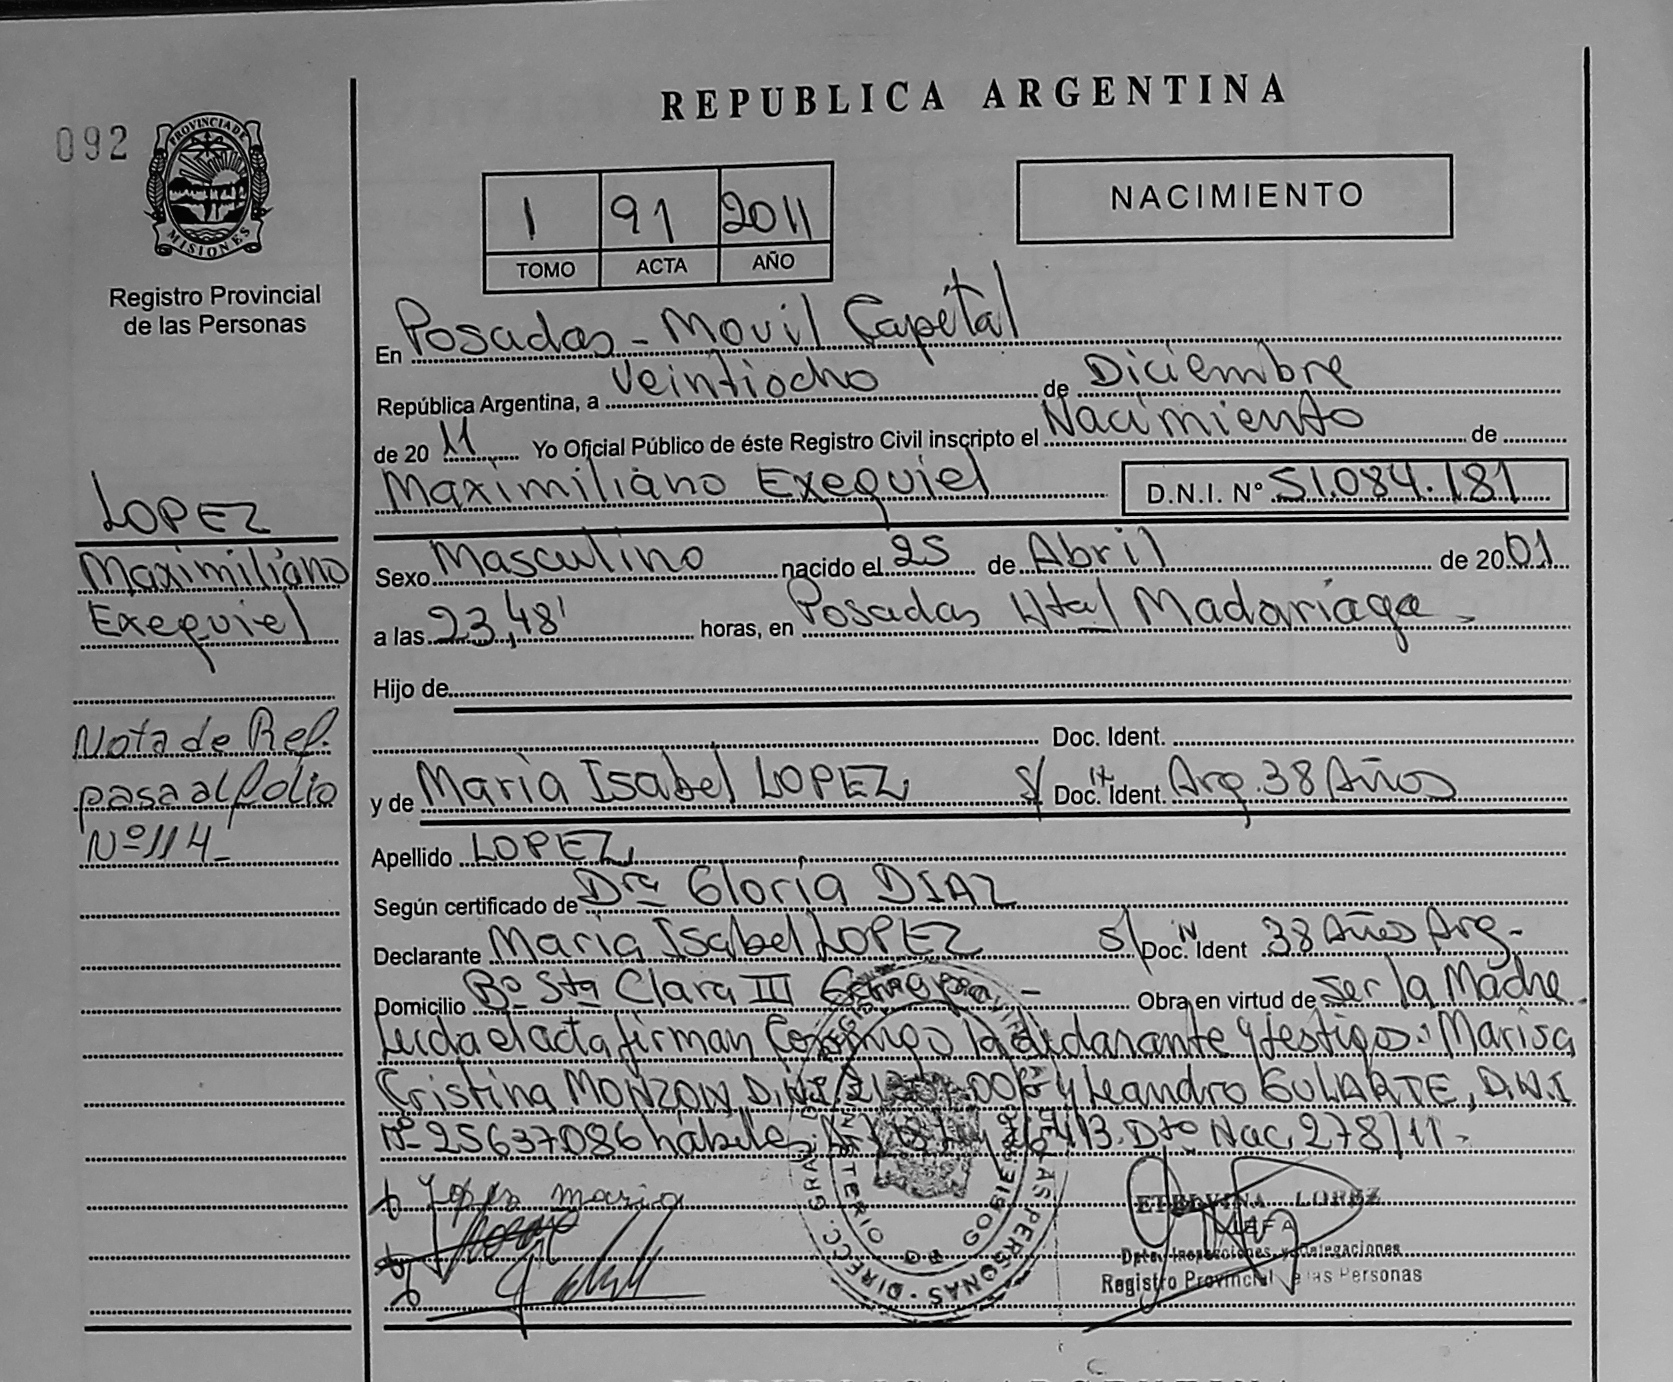 REPUBLICA ARGENTINA
092
PROVINCIA DE
MISIONES
Registro Provincial
de las Personas
1 91 2011
TOMO ACTA AÑO
NACIMIENTO
En Posadas - Movil Capital
República Argentina, a Veintiocho de Diciembre
de 20 11 Yo Oficial Público de éste Registro Civil inscripto el Nacimiento de
Maximiliano Exequiel D.N.I. Nº 51.084.181
LOPEZ
Maximiliano
Exequiel
Sexo Masculino nacido el 25 de Abril de 20 01
a las 23,48' horas, en Posadas Htal Madariaga
Hijo de
Doc. Ident.
Nota de Ref.
pasa al folio
Nº 114-
y de Maria Isabel LOPEZ s/ Doc. Ident. Arg. 38 Años
Apellido LOPEZ
Según certificado de Dra Gloria DIAZ
Declarante Maria Isabel LOPEZ s/ Doc. Ident 38 Años Arg-
Domicilio Bº Sta Clara III - Obra en virtud de ser la Madre
Leida el acta firman Conmigo la declarante y testigos: Marisa
Cristina MONZON, D.N.I. y Leandro GULARTE, D.N.I
Nº 25637086 hábiles. Dto Nac. 278/11-
Lopez maria
LOPEZ
JEFA
Dpto. Inspecciones y Delegaciones
Registro Provincial de las Personas